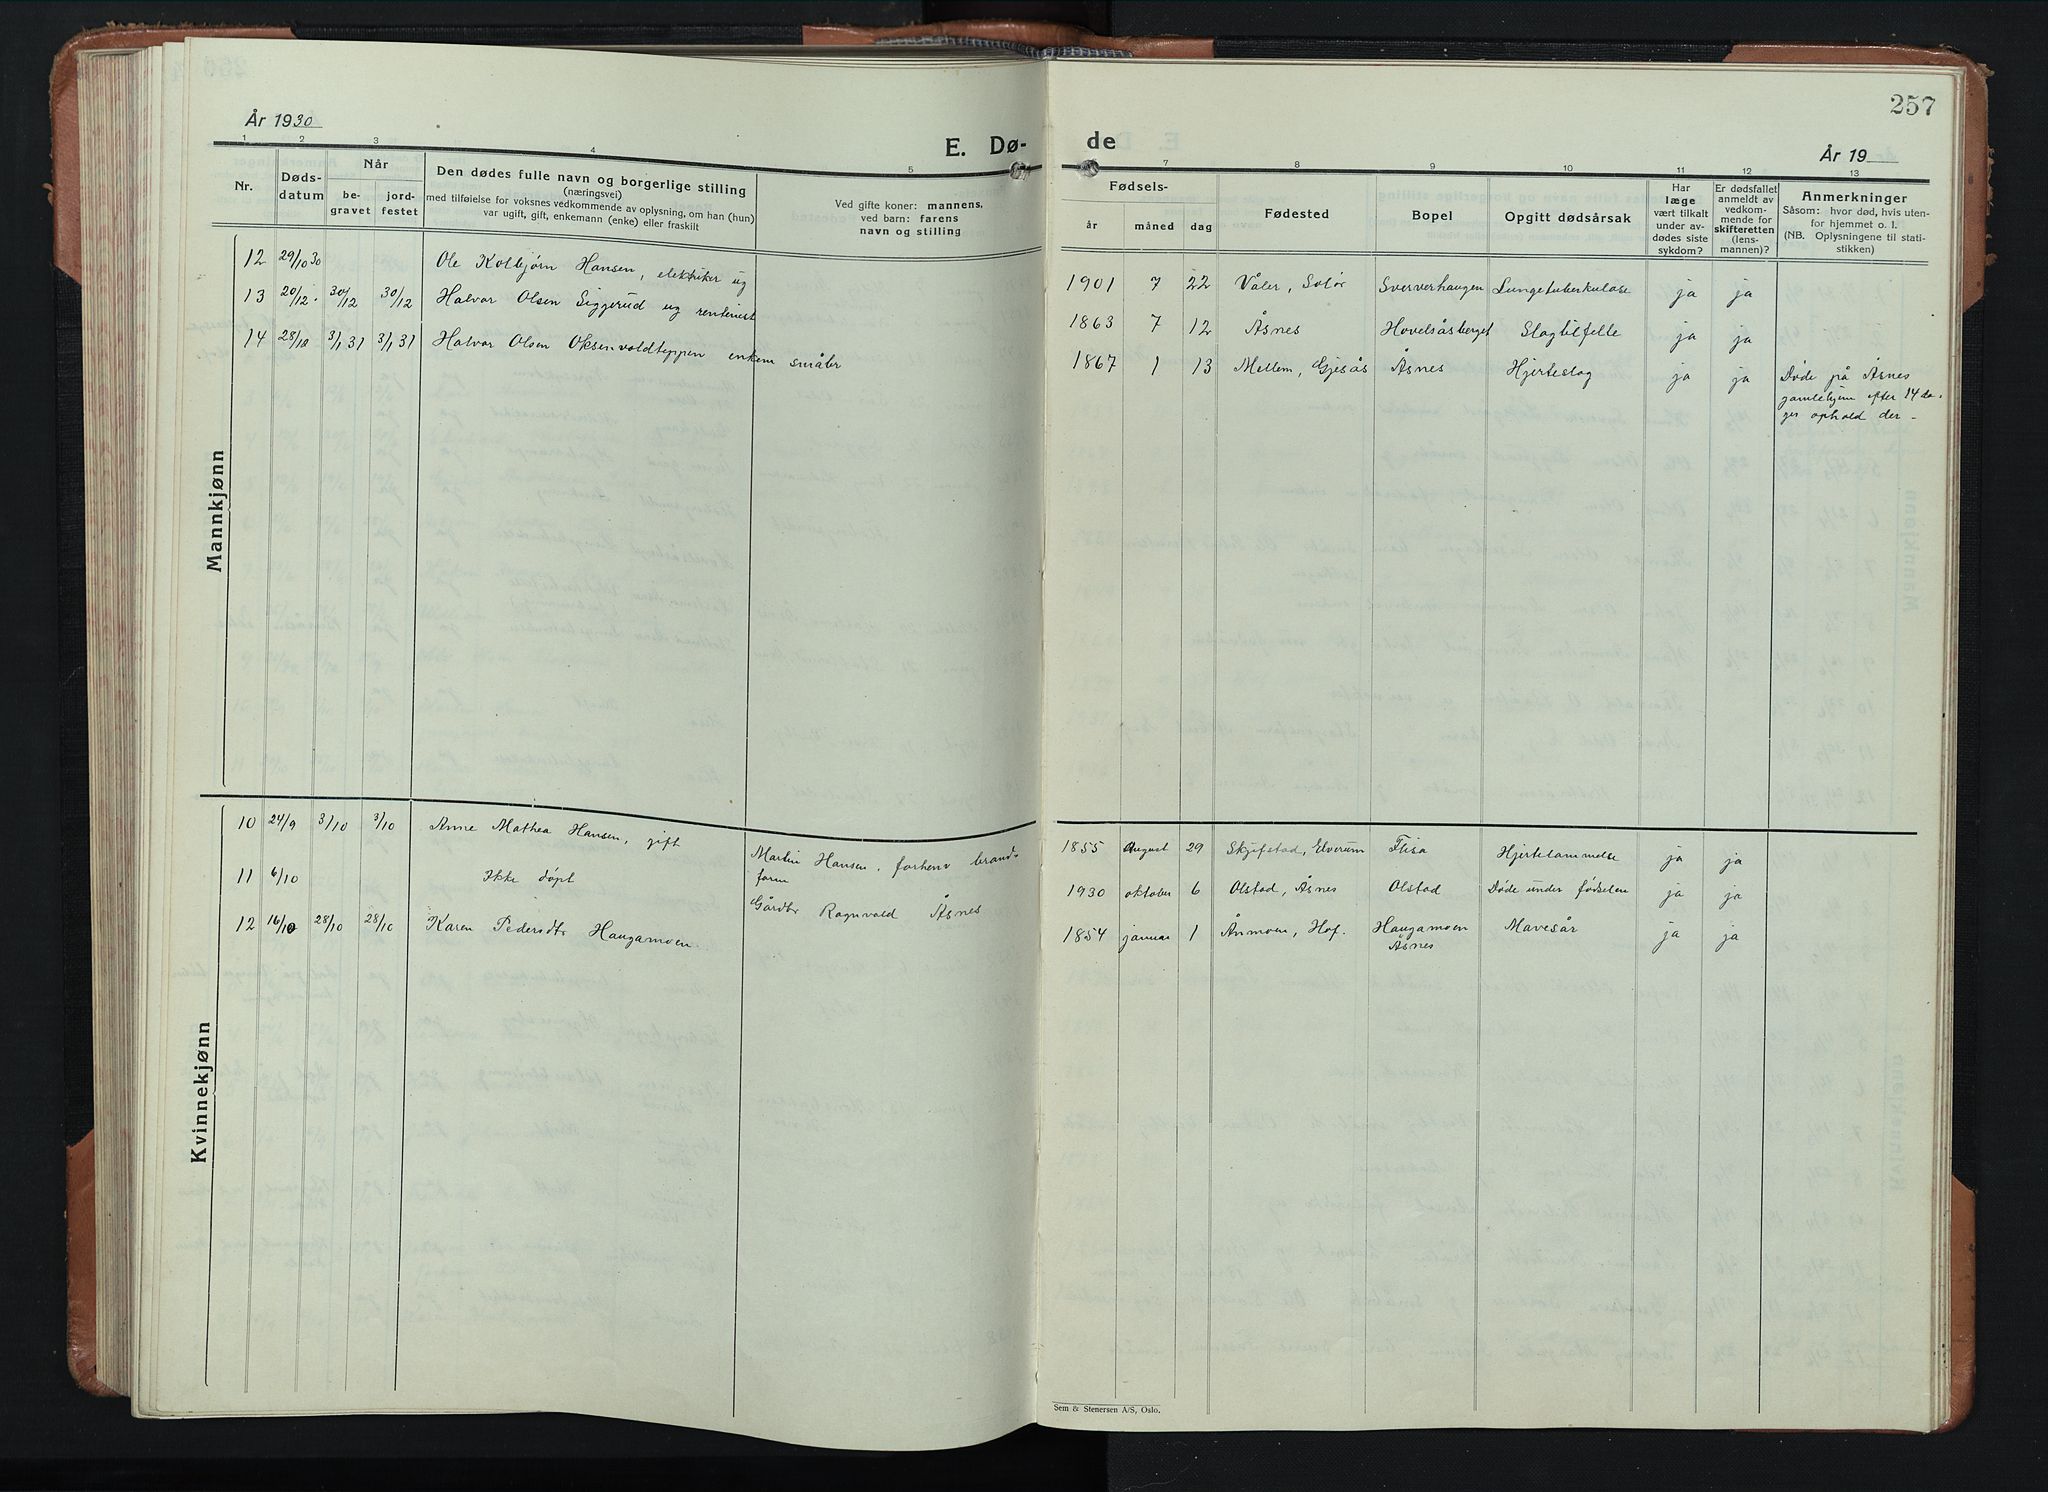 257
År 1930
E. Dø-
de
År 19
1 2 3 4 5
7 8 9 10 11 12 13
Nr.
Døds-
datum
Når
be-
gravet
jord-
festet
Den dødes fulle navn og borgerlige stilling
(næringsvei)
med tilføielse for voksnes vedkommende av oplysning, om han (hun)
var ugift, gift, enkemann (enke) eller fraskilt
Ved gifte koner: mannens,
ved barn: farens
navn og stilling
Fødsels-
år måned dag
Fødested
Bopel
Opgitt dødsårsak
Har
læge
vært tilkalt
under av-
dødes siste
sykdom?
Er dødsfallet
anmeldt av
vedkom-
mende for
skifteretten
(lens-
mannen)?
Anmerkninger
Såsom: hvor død, hvis uten-
for hjemmet o. l.
(NB. Oplysningene til stati-
stikken)
Mannkjønn
12 29/10 30 Ole Kolbjørn Hansen, elektriker ug 1901 7 22 Våler, Solør Sververhaugen Lungetuberkulose ja ja
13 20/12 30/12 30/12 Halvor Olsen Siggerud ug rentenist 1863 7 12 Åsnes Hovelsåsberget Slagtilfelle ja ja
14 28/12 3/1 31 3/1 31 Halvor Olsen Oksenvoldteppen enkem småbr 1867 1 13 Mellem, Gjesås Åsnes Hjerteslag ja ja Døde på Åsnes
gamlehjem efter 14 da-
ges ophold der -
Kvinnekjønn
10 24/9 3/10 3/10 Anne Mathea Hansen, gift Martin Hansen, forhenv brand-
form 1855 august 29 Skjefstad, Elverum Flisa Hjertelammelse ja ja
11 6/10 Ikke døpt Gårdbr Ragnvald Åsnes 1930 oktober 6 Olstad, Åsnes Olstad Døde under fødselen ja ja
12 16/10 28/10 28/10 Karen Pedersdtr Haugamoen. 1854 januar 1 Ånmoen, Hof. Haugamoen
Åsnes Mavesår ja ja
Sem & Stenersen A/S, Oslo.